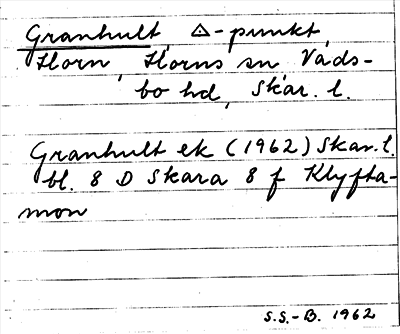 Granhult, △-punkt,
Horn, Horns sn, Vads-
bo hd, Skar. l.
Granhult ek (1962) Skar. l.
bl. 8 D Skara 8 f Klyfta-
mon
S.S.-B. 1962